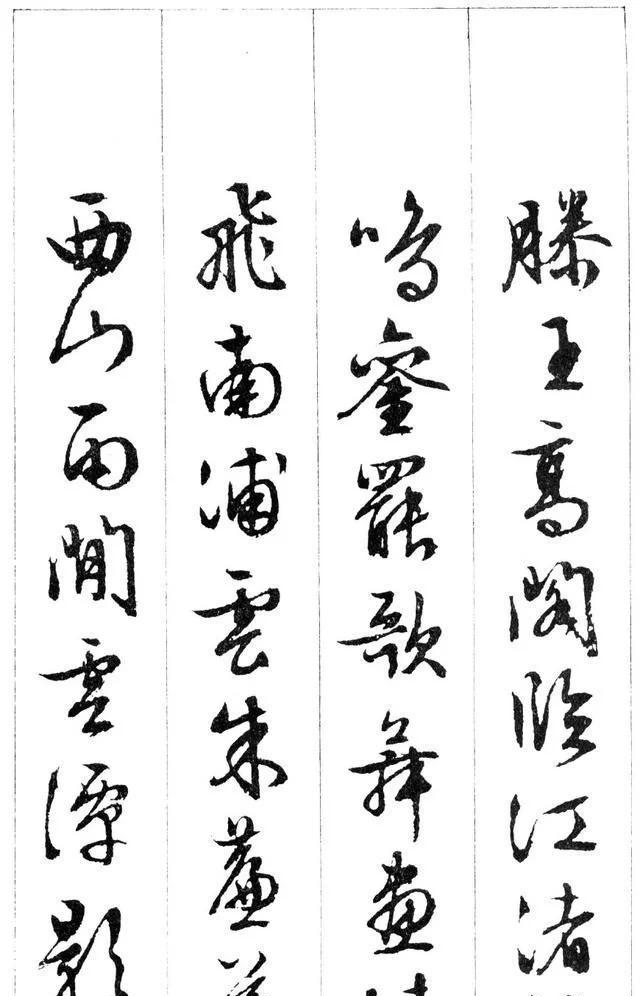 滕王高閣臨江渚
鳴鑾罷歌舞畫
飛南浦雲朱簾
西山雨閒雲潭影